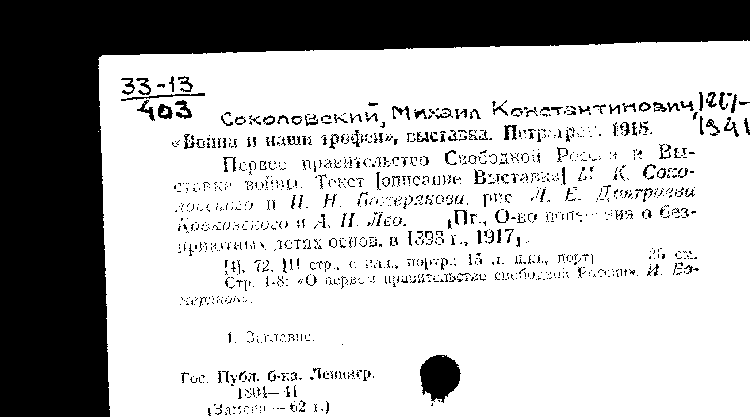 33-13
403
Соколовский, Михаил Константинович,
«Война и наши трофеи», выставка. Петроград. 1915.
Первое правительство Свободной России и Вы-
ставка войны. Текст [описание Выставки] М. К. Соко-
ловского и И. Н. Божерянова, рис. Л. Е. Дмитриева
Кавказского и А. Н. Лео. [Пг., О-во попечения о без-
приютных детях основ. в 1898 г., 1917].
[4], 72, [1] стр., с илл., портр.; 15 л. илл., портр. 26 см.
Стр. 1-8: «О первом правительстве свободной России». И. Бо-
жерянов.
1. Заглавие.
Гос. Публ. б-ка. Ленингр.
1804—41
(Замена — 62 г.)